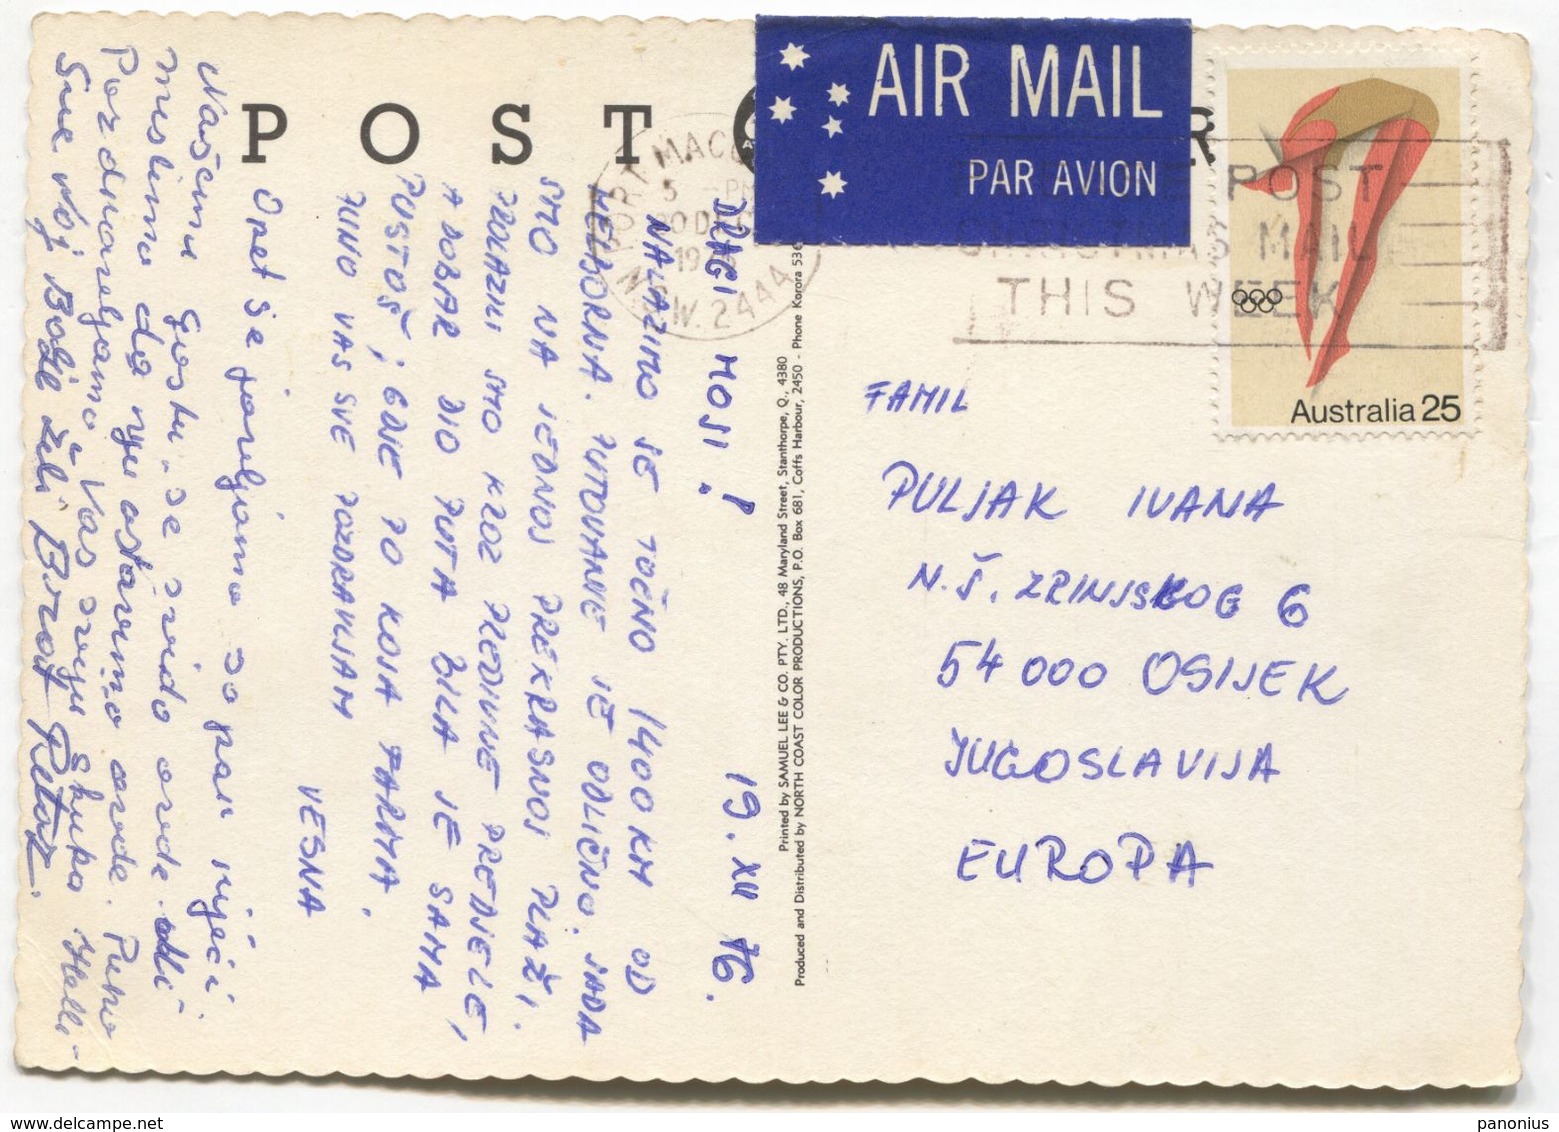 POST
AIR MAIL
PAR AVION
PORT MAC
5 -PM
20 DEC
1976
N.S.W. 2444
POST
CHRISTMAS MAIL
THIS WEEK
Australia 25
19. XII 76.
DRAGI MOJI!
NALAZIMO SE TOČNO 1400 KM OD
MELBORNA. PUTOVANJE JE ODLIČNO. SADA
SMO NA JEDNOJ PREKRASNOJ PLAŽI.
PROLAZILI SMO KROZ PREDIVNE PREDJELE,
A DOBAR DIO PUTA BILA JE SAMA
PUSTOŠ, GDJE PO KOJA FARMA.
PUNO VAS SVE POZDRAVLJAM
VESNA
Opet se javljamo sa par riječi
Našem gostu se sviđa ovde
mislimo da nju ostavimo ovde. Puno
Pozdravljamo Vas sviju skupa
Sve Voj Bolje želi Brat
Printed by SAMUEL LEE & CO. PTY. LTD., 48 Maryland Street, Stanthorpe, Q., 4380
Produced and Distributed by NORTH COAST COLOR PRODUCTIONS, P.O. Box 681, Coffs Harbour, 2450 - Phone Korora 536
FAMIL
PULJAK IVANA
N.Š. ZRINJSKOG 6
54000 OSIJEK
JUGOSLAVIJA
EUROPA
panonius